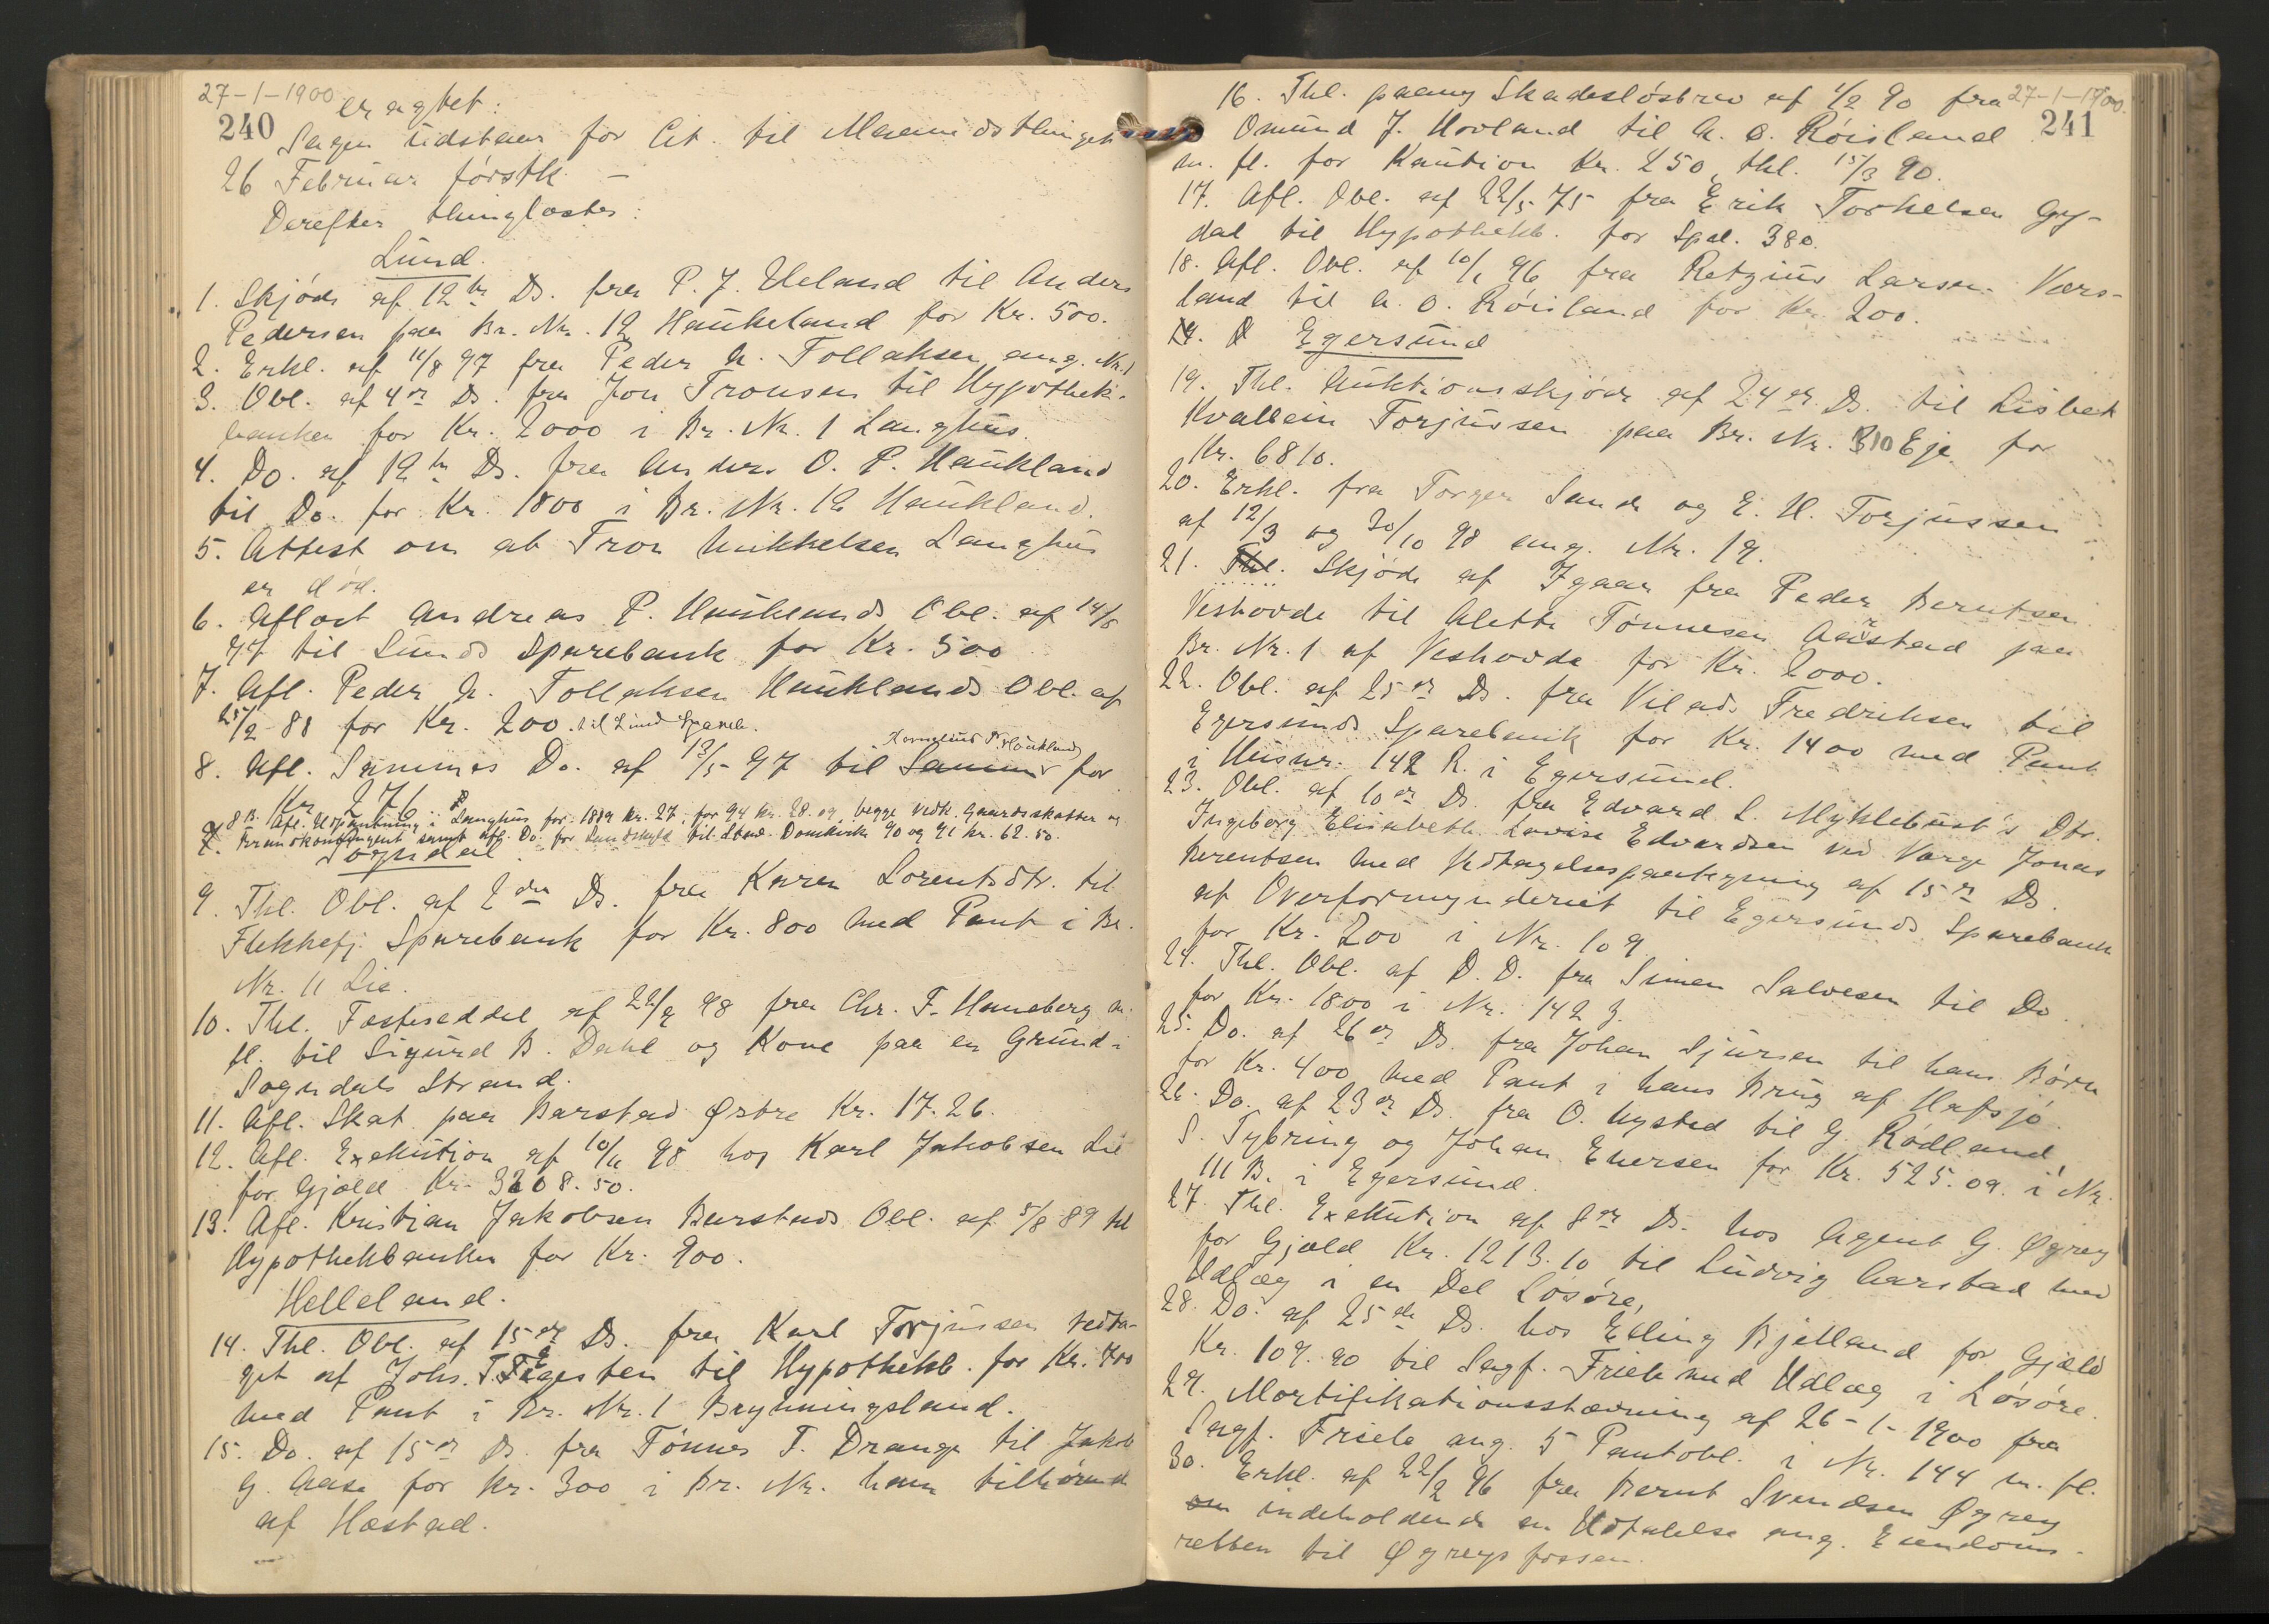 27-1-1900
240
eragtet:
Sagen udstaar for Cit. til Maanedsthinget
26 Februar förstk. –
Derefter thinglæstes:
Lund.
1. Skjöde af 12te Ds. fra P. J. Ueland til Anders
Pedersen paa Br. Nr. 12 Haukeland for Kr. 500.
2. Erkl. af 11/8 97 fra Peder A. Tollaksen ang. Nr. 1
3. Obl. af 4de Ds. fra Jon Tronsen til Hypothek-
banken for Kr. 2000 i Br. Nr. 1 Langhus.
4. Do. af 12te Ds. fra Anders O. P. Haukland
til Do. for Kr. 1800 i Br. Nr. 12 Haukland.
5. Attest om at Tron Mikkelsen Langhus
er död.
6. Aflöst Andreas P. Hauklands Obl. af 14/5
97 til Lunds Sparebank for Kr. 500
7. Afl. Peder A. Tollaksen Hauklands Obl. af
25/2 88 for Kr. 200. til Lund Spareb.
Kornelius P. Haukland
8. Afl. Sammes Do. af 13/5 97 til Samme for
Kr. 276
8 B. Afl. Udpantning i Langhus for 1889 Kr. 27, for 94 Kr. 28.09, begge vedk. Gaardsskatter og
Brandkontingent samt Afl. Do. for Landskyld til Stav. Domkirke 90 og 91 Kr. 62.50.
Sogndal
9. Thl. Obl. af 2den Ds. fra Karen Lorentsdtr. til
Flekkefj. Sparebank for Kr. 800 med Pant i Br.
Nr. 11 Lie.
10. Thl. Fæsteseddel af 22/9 98 fra Chr. F. Hanneberg m.
fl. til Sigurd B. Dahl og Kone paa en Grund i
Sogndals Strand.
11. Afl. Skat paa Barstad Östre Kr. 17.26.
12. Afl. Exekution af 10/11 98 hos Karl Jakobsen Lie
for Gjæld Kr. 3208.50.
13. Afl. Kristian Jakobsen Barstads Obl. af 5/8 89 til
Hypothekbanken for Kr. 900.
Helleland.
14. Thl. Obl. af 15de Ds. fra Karl Torjusen vedta-
get af Johs. T. Egesten til Hypothekb. for Kr. 700
med Pant i Br. Nr. 1 Brynningsland.
15. Do. af 15de Ds. fra Tönnes T. Drange til Jakob
G. Aase for Kr. 300 i Br. Nr. ham tilhörende
af Hæstad.
27-1-1900.
241
16. Thl. paany Skadeslösbrev af 1/2 90 fra
Omund J. Hovland til A. O. Röisland
m. fl. for Kaution Kr. 250, thl. 15/3 90.
17. Afl. Obl. af 22/5 75 fra Erik Torkelsen Gy-
dal til Hypothekb. for Spd. 380.
18. Afl. Obl. af 10/1 96 fra Retzius Larsen Vers-
land til A. O. Röisland for Kr. 200.
Egersund
19. Thl. Auktionsskjöde af 24de Ds. til Lisbet
Kvallein Torjussen paa Br. Nr. 310 Eje for
Kr. 6810.
20. Erkl. fra Torger Sande og E. H. Torjussen
af 12/3 og 30/10 98 ang. Nr. 19.
21. Thl. Skjöde af Igaar fra Peder Berntsen
Veshovde til Alette Tönnesen Aarstad paa
Br. Nr. 1 af Veshovde for Kr. 2000.
22. Obl. af 25de Ds. fra Vilads Fredriksen til
Egersunds Sparebank for Kr. 1400 med Pant
i Husnr. 142 R. i Egersund.
23. Obl. af 10de Ds. fra Edvard L. Myklebust's Dtr.
Ingeborg Elisabeth Lovise Edvardsen ved Værge Jonas
Berentsen med Vedtagelsespaategning af 15de Ds.
af Overformynderiet til Egersunds Sparebank
for Kr. 200 i Nr. 109
24. Thl. Obl. af D. D. fra Simon Salvesen til Do.
for Kr. 1800 i Nr. 142 J.
25. Do. af 26de Ds. fra Johan Sjursen til hans Börn
for Kr. 400 med Pant i hans Brug af Hafsjö.
26. Do. af 23de Ds. fra O. Nysted til G. Rödland
S. Tybring og Johan Ehersen for Kr. 525.09. i Nr.
111 B. i Egersund.
27. Thl. Exekution af 8de Ds. hos Agent G. Øgrey
for Gjæld Kr. 1213.10 til Ludvig Aarstad med
Udlæg i en Del Lösöre.
28. Do. af 25de Ds. hos Elling Bjelland for Gjæld
Kr. 109.90 til Sagf. Friele med Udlæg i Lösöre.
29. Mortifikationsstævning af 26-1-1900 fra
Sagf. Friele ang. 5 Pantobl. i Nr. 144 m. fl.
30. Erkl. af 22/2 96 fra Bernt Svendsen Øgrey
om indeholdende en Udtalelse ang. Eiendoms-
retten til Øgreysfossen.